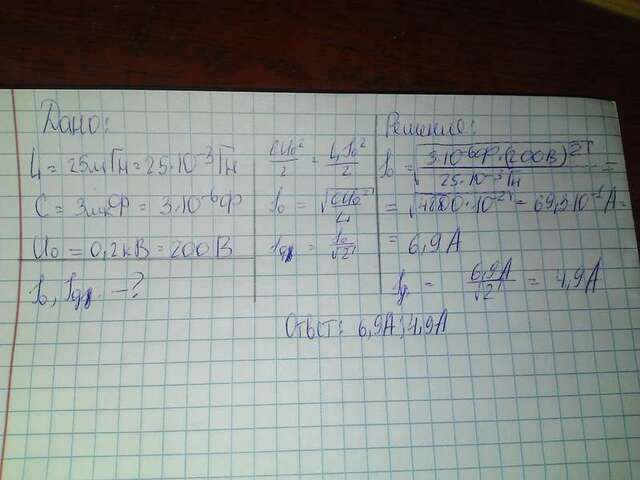 Дано:
L = 25мГн = 25·10⁻³Гн
C = 3мкФ = 3·10⁻⁶Ф
U₀ = 0,2кВ = 200В
I₀, Iд. -?
CU₀²/2 = LI₀²/2
I₀ = √(CU₀²/L)
Iд = I₀/√2
Решение:
I₀ = √(3·10⁻⁶Ф·(200В)²/25·10⁻³Гн) =
= √(4800·10⁻²) = 69,3·10⁻¹А =
= 6,9А
Iд. = 6,9А/√2 = 4,9А
Ответ: 6,9А; 4,9А